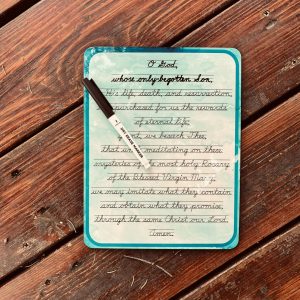 O God,
whose only-begotten Son,
life, death, and resurrection,
purchased for us the rewards
of eternal life,
we beseech Thee,
that meditating on these
mysteries of most holy Rosary
of the Blessed Virgin Mary,
we may imitate what they contain
and obtain what they promise,
through the same Christ our Lord.
Amen.